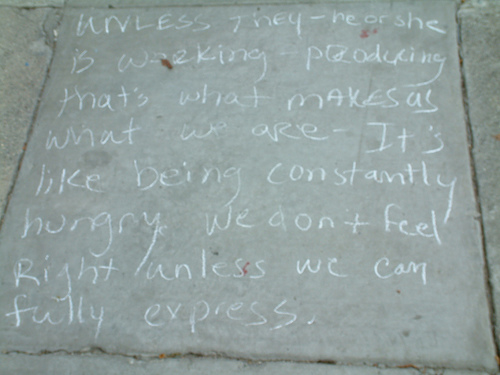 . UNLESS They-he or she
is working - producing
that's what MAKES us
what we are - It's
like being constantly
hungry. We don't feel
Right unless we can
fully express.